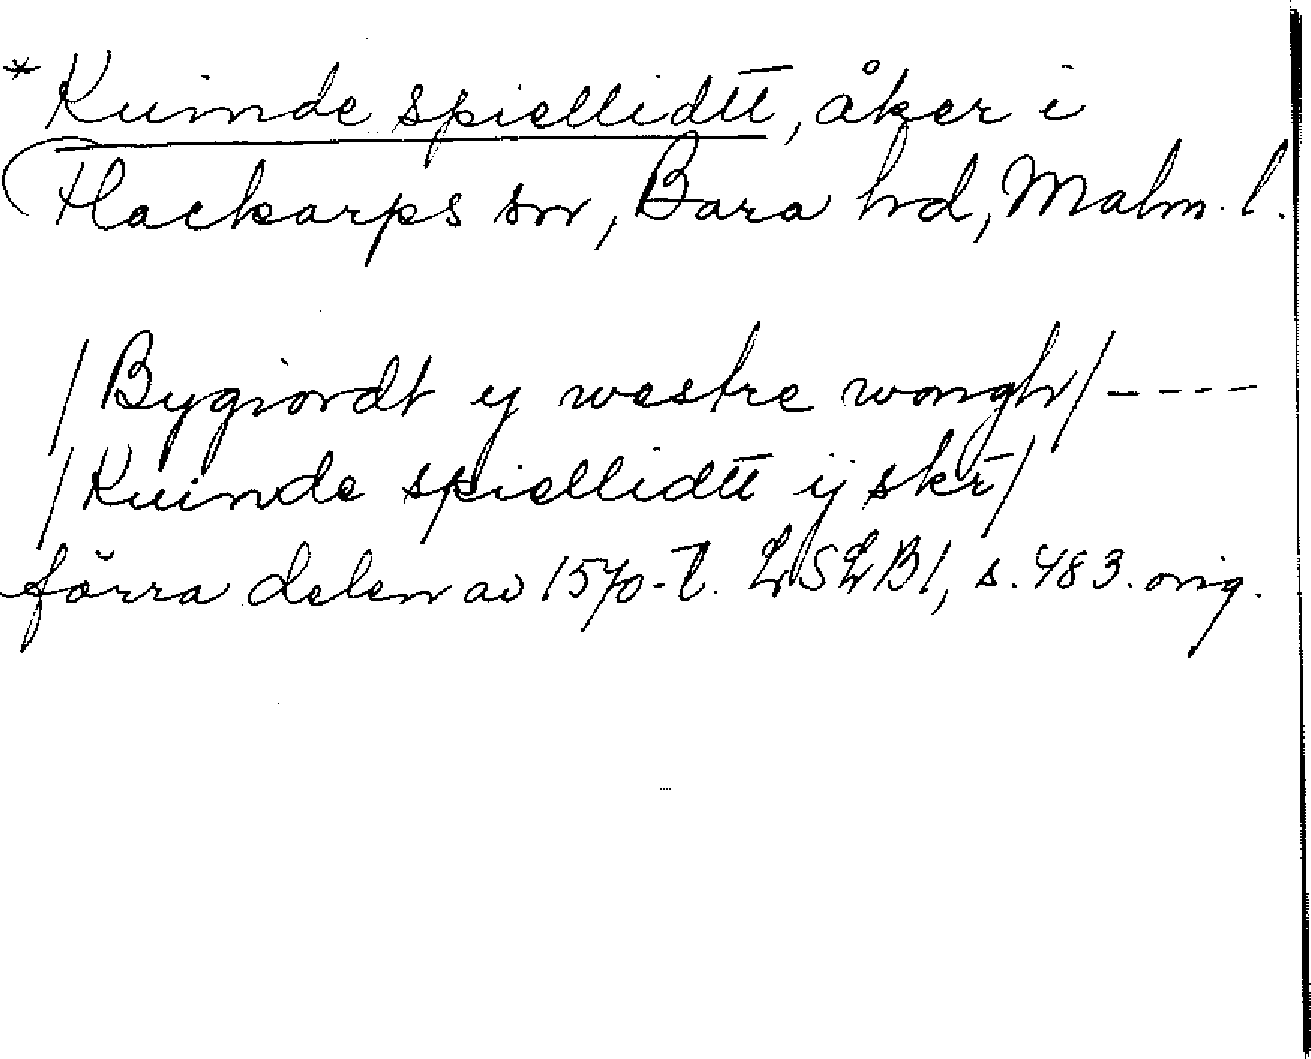 * Kuinde spiellidtt, åker i
Flackarps sn, Bara hd, Malm. l.
/Bygiordt ij westre wongh/ ----
/Kuinde spiellidtt ij skr/
förra delen av 1570-t. LSLB1, s. 483. orig.